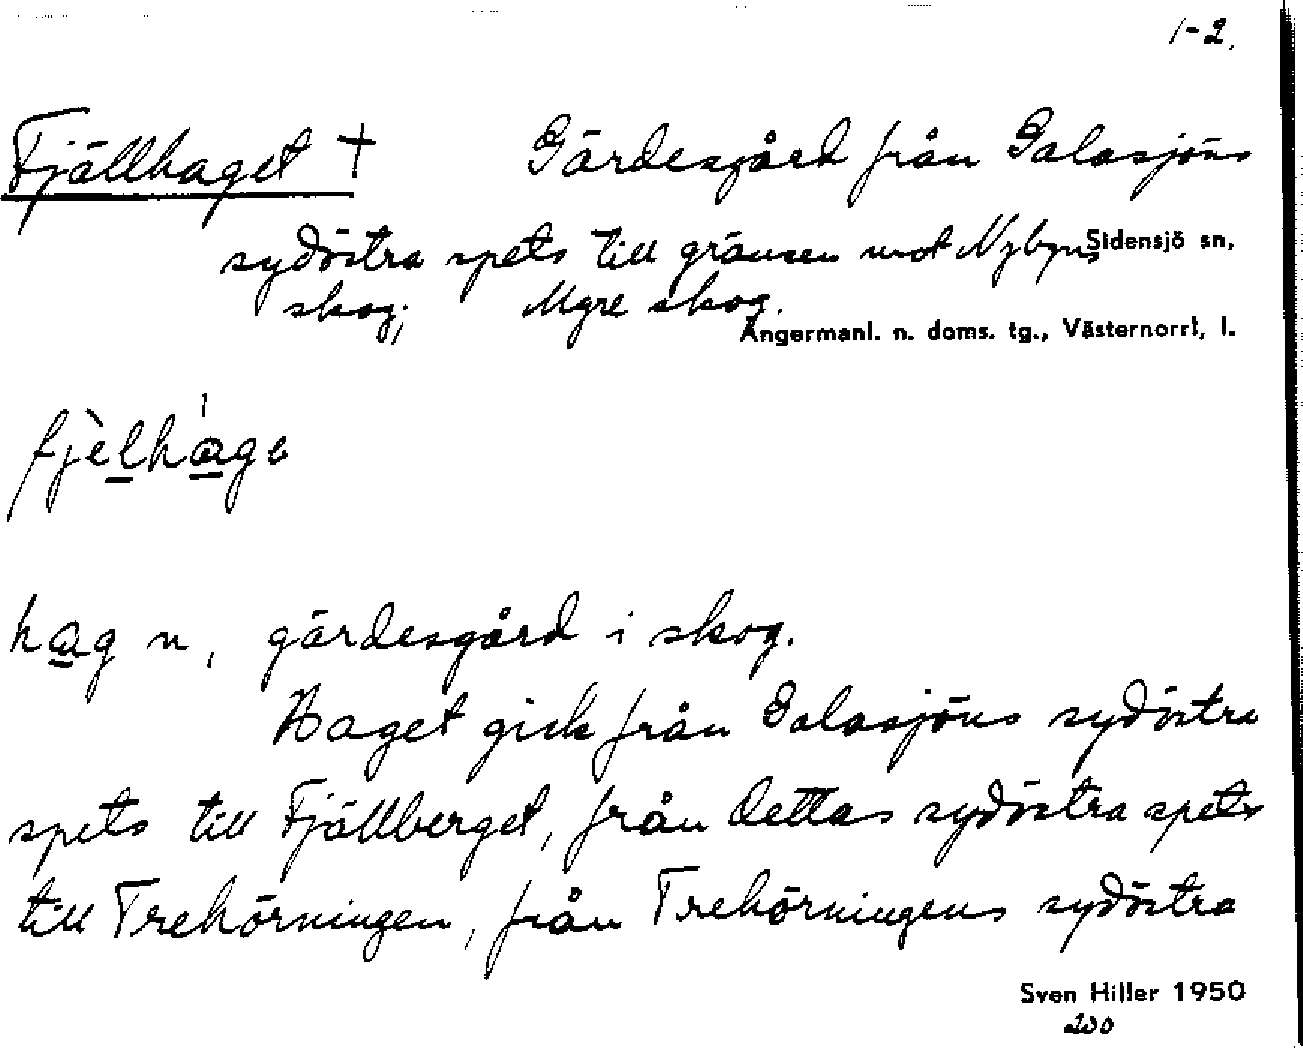 1-2.
Fjällhaget † Gärdesgård från Galasjöns
sydöstra spets till gränsen mot Nybyns Sidensjö sn,
skog; Myre skog.
Ångermanl. n. doms. tg., Västernorrl, l.
fjèlhág
hag n, gärdesgård i skog.
Haget gick från Galasjöns sydöstra
spets till Fjällberget, från dettas sydöstra spets
till Trehörningen, från Trehörningens sydöstra
Sven Hiller 1950
200